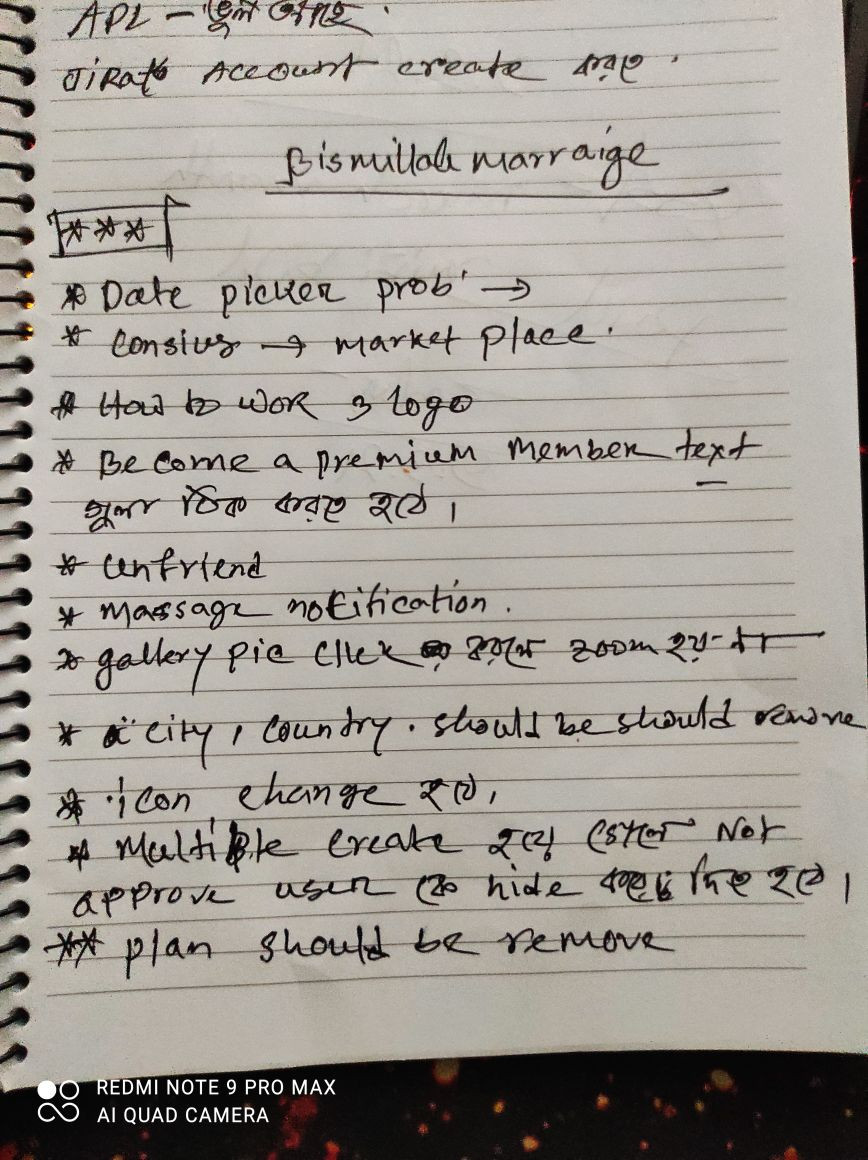 API - ভুল আছে.
Account create করতে.
Bismillah marraige
***
* Date picker prob' →
* Consius → market place.
* How to work 3 logo
* Become a premium member text
গুলা ঠিক করতে হবে।
* unfriend
* massage notification.
* gallery pic click করলে zoom হয় না
* city, country. should be should remove
* icon change হবে,
* Multiple create হয়ে গেলে Not
approve user কে hide করে দিতে হবে।
** plan should be remove
REDMI NOTE 9 PRO MAX
AI QUAD CAMERA